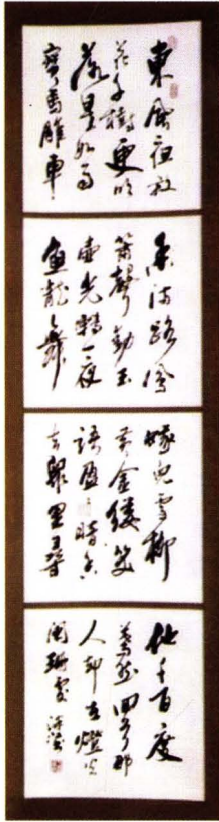 東風夜放
花千樹更吹
落星如雨
寶馬雕車
香滿路鳳
簫聲動玉
壺光轉一夜
魚龍舞
蛾兒雪柳
黃金縷笑
語盈盈暗香
去眾里尋
他千百度
驀然回首那
人卻在燈火
闌珊處